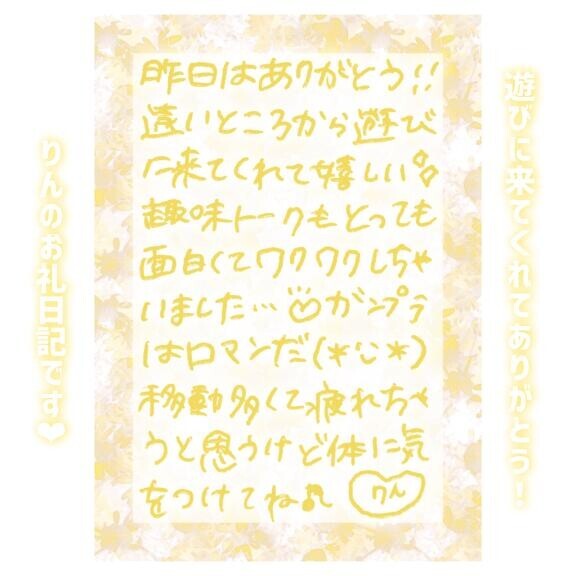 遊びに来てくれてありがとう！
昨日はありがとう!!
遠いところから遊び
に来てくれて嬉しい
趣味トークもとっても
面白くてワクワクしちゃ
いました…♡ガンプラ
はロマンだ(*ˊᵕˋ*)
移動多くて疲れちゃ
うと思うけど体に気
をつけてね♪ りん
りんのお礼日記です♥